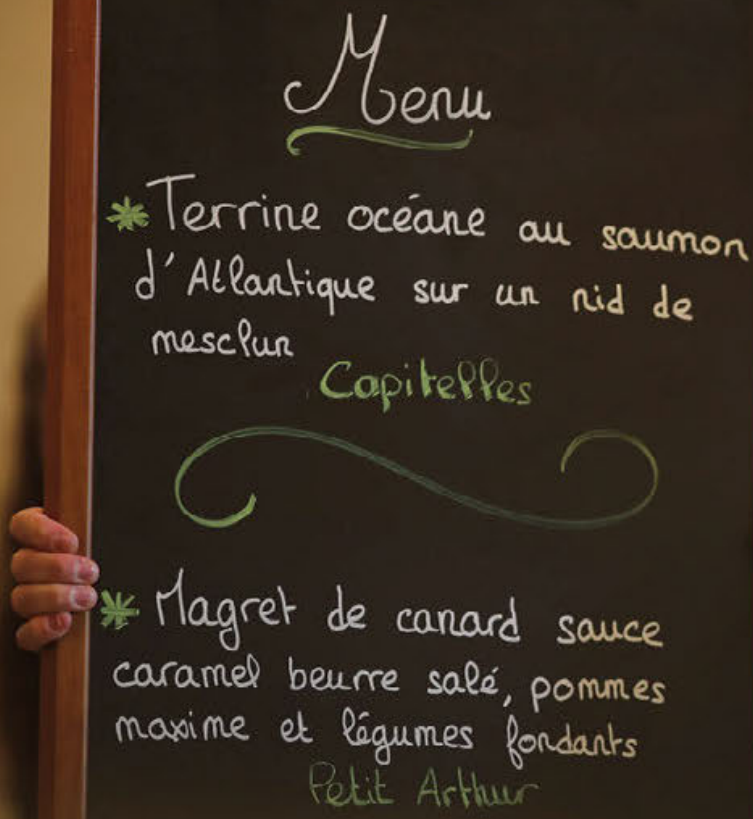 Menu
* Terrine océane au saumon
d'Atlantique sur un nid de
mesclun
Capitelles
* Magret de canard sauce
caramel beurre salé, pommes
maxime et légumes fondants
Petit Arthur